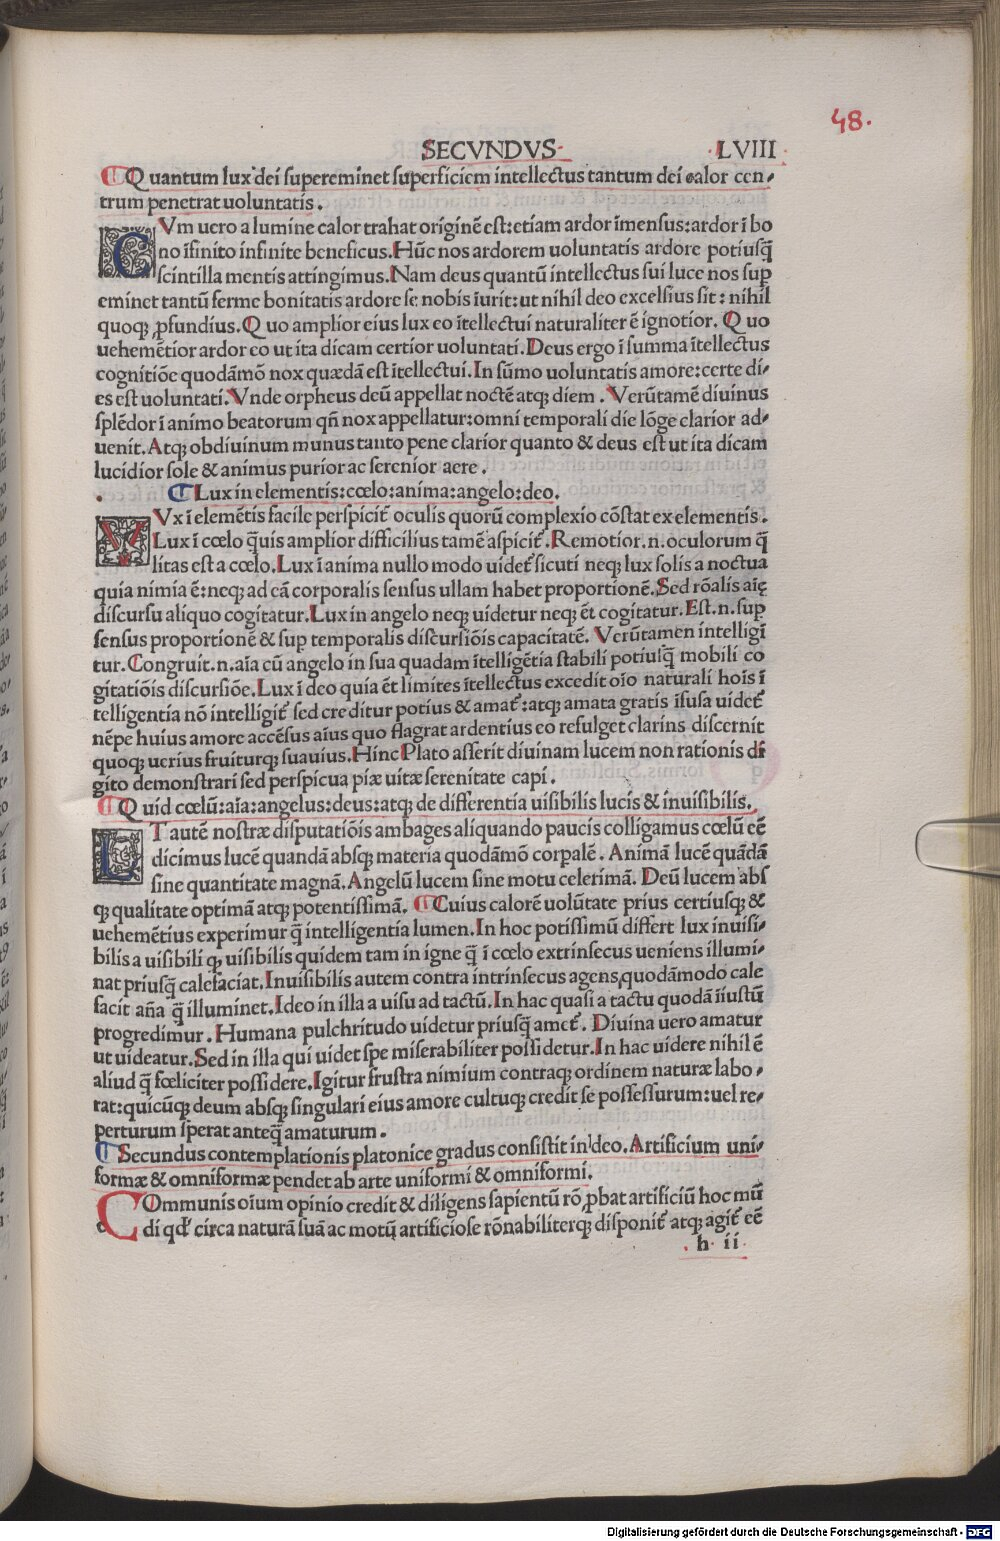 48.
SECVNDVS LVIII
Quantum lux dei supereminet superficiem intellectus tantum dei calor cen-
trum penetrat uoluntatis.
CVm uero a lumine calor trahat originē est: etiam ardor īmensus: ardor ī bo
no īfinito infinite beneficus. Hūc nos ardorem uoluntatis ardore potiusq̄
scintilla mentis attingimus. Nam deus quantū intellectus sui luce nos suꝑ
eminet tantū ferme bonitatis ardore se nobis īurit: ut nihil deo excelsius sit: nihil
quoq; ꝓfundius. Quo amplior eius lux eo ītellectui naturaliter ē ignotior. Quo
uehemētior ardor eo ut ita dicam certior uoluntati. Deus ergo ī summa ītellectus
cognitiōe quodāmō nox quædā est ītellectui. In sūmo uoluntatis amore: certe di-
es est uoluntati. Vnde orpheus deū appellat noctē atq; diem. Verūtamē diuinus
splēdor ī animo beatorum qñ nox appellatur: omni temporali die lōge clarior ad-
uenit. Atq; ob diuinum munus tanto pene clarior quanto & deus est ut ita dicam
lucidior sole & animus purior ac serenior aere.
Lux in elementis: cœlo: anima: angelo: deo.
Vx ī elemētis facile perspicit᷑ oculis quorū complexio cōstat ex elementis.
Lux ī cœlo q̄uis amplior difficilius tamē aspicit᷑. Remotior .n. oculorum q̄
litas est a cœlo. Lux ī anima nullo modo uidet᷑ sicuti neq; lux solis a noctua
quia nimia ē: neq; ad eā corporalis sensus ullam habet proportionē. Sed rōalis aīę
discursu aliquo cogitatur. Lux in angelo neq; uidetur neq; ēt cogitatur. Est .n. suꝑ
sensus proportionē & suꝑ temporalis discursiōis capacitatē. Verūtamen intelligī
tur. Congruit .n. aīa cū angelo in sua quadam ītelligētia stabili potiusq̄ mobili co
gitatiōis discursiōe. Lux ī deo quia ēt limites ītellectus excedit oīo naturali hoīs ī
telligentia nō intelligit᷑ sed creditur potius & amat᷑: atq; amata gratis īfusa uidet᷑
nēpe huius amore accēsus aīus quo flagrat ardentius eo refulget clarius discernit
quoq; uerius fruiturq; suauius. Hinc Plato asserit diuinam lucem non rationis di
gito demonstrari sed perspicua piæ uitæ serenitate capi.
Quid cœlū: aīa: angelus: deus: atq; de differentia uisibilis lucis & inuisibilis.
T autē nostræ disputatiōis ambages aliquando paucis colligamus cœlū eē
dicimus lucē quandā absq; materia quodāmō corꝑalē. Animā lucē quādā
sine quantitate magnā. Angelū lucem sine motu celerimā. Deū lucem abs
q; qualitate optimā atq; potentissimā. Cuius calorē uolūtate prius certiusq; &
uehemētius experimur q̄ intelligentia lumen. In hoc potissimū differt lux inuisi-
bilis a uisibili q; uisibilis quidem tam in igne q̄ ī cœlo extrinsecus ueniens illumi-
nat priusq̄ calefaciat. Inuisibilis autem contra intrinsecus agens, quodāmodo cale
facit añ q̄ illuminet. Ideo in illa a uisu ad tactū. In hac quasi a tactu quodā ī uisū
progredimur. Humana pulchritudo uidetur priusq̄ amet᷑. Diuina uero amatur
ut uideatur. Sed in illa qui uidet spe miserabiliter possidetur. In hac uidere nihil ē
aliud q̄ fœliciter possidere. Igitur frustra nimium contraq; ordinem naturæ labo-
rat: quicūq; deum absq; singulari eius amore cultuq; credit se possessurum: uel re-
perturum sperat anteq̄ amaturum.
Secundus contemplationis platonice gradus consistit in deo. Artificium uni-
formæ & omniformæ pendet ab arte uniformi & omniformi.
COmmunis oium opinio credit & diligens sapientū rō ꝓbat artificiū hoc mū
di qď circa naturā suā ac motū artificiose rōnabiliterq; disponit᷑ atq; agit᷑ eē
h ii
Digitalisierung gefördert durch die Deutsche Forschungsgemeinschaft - DFG